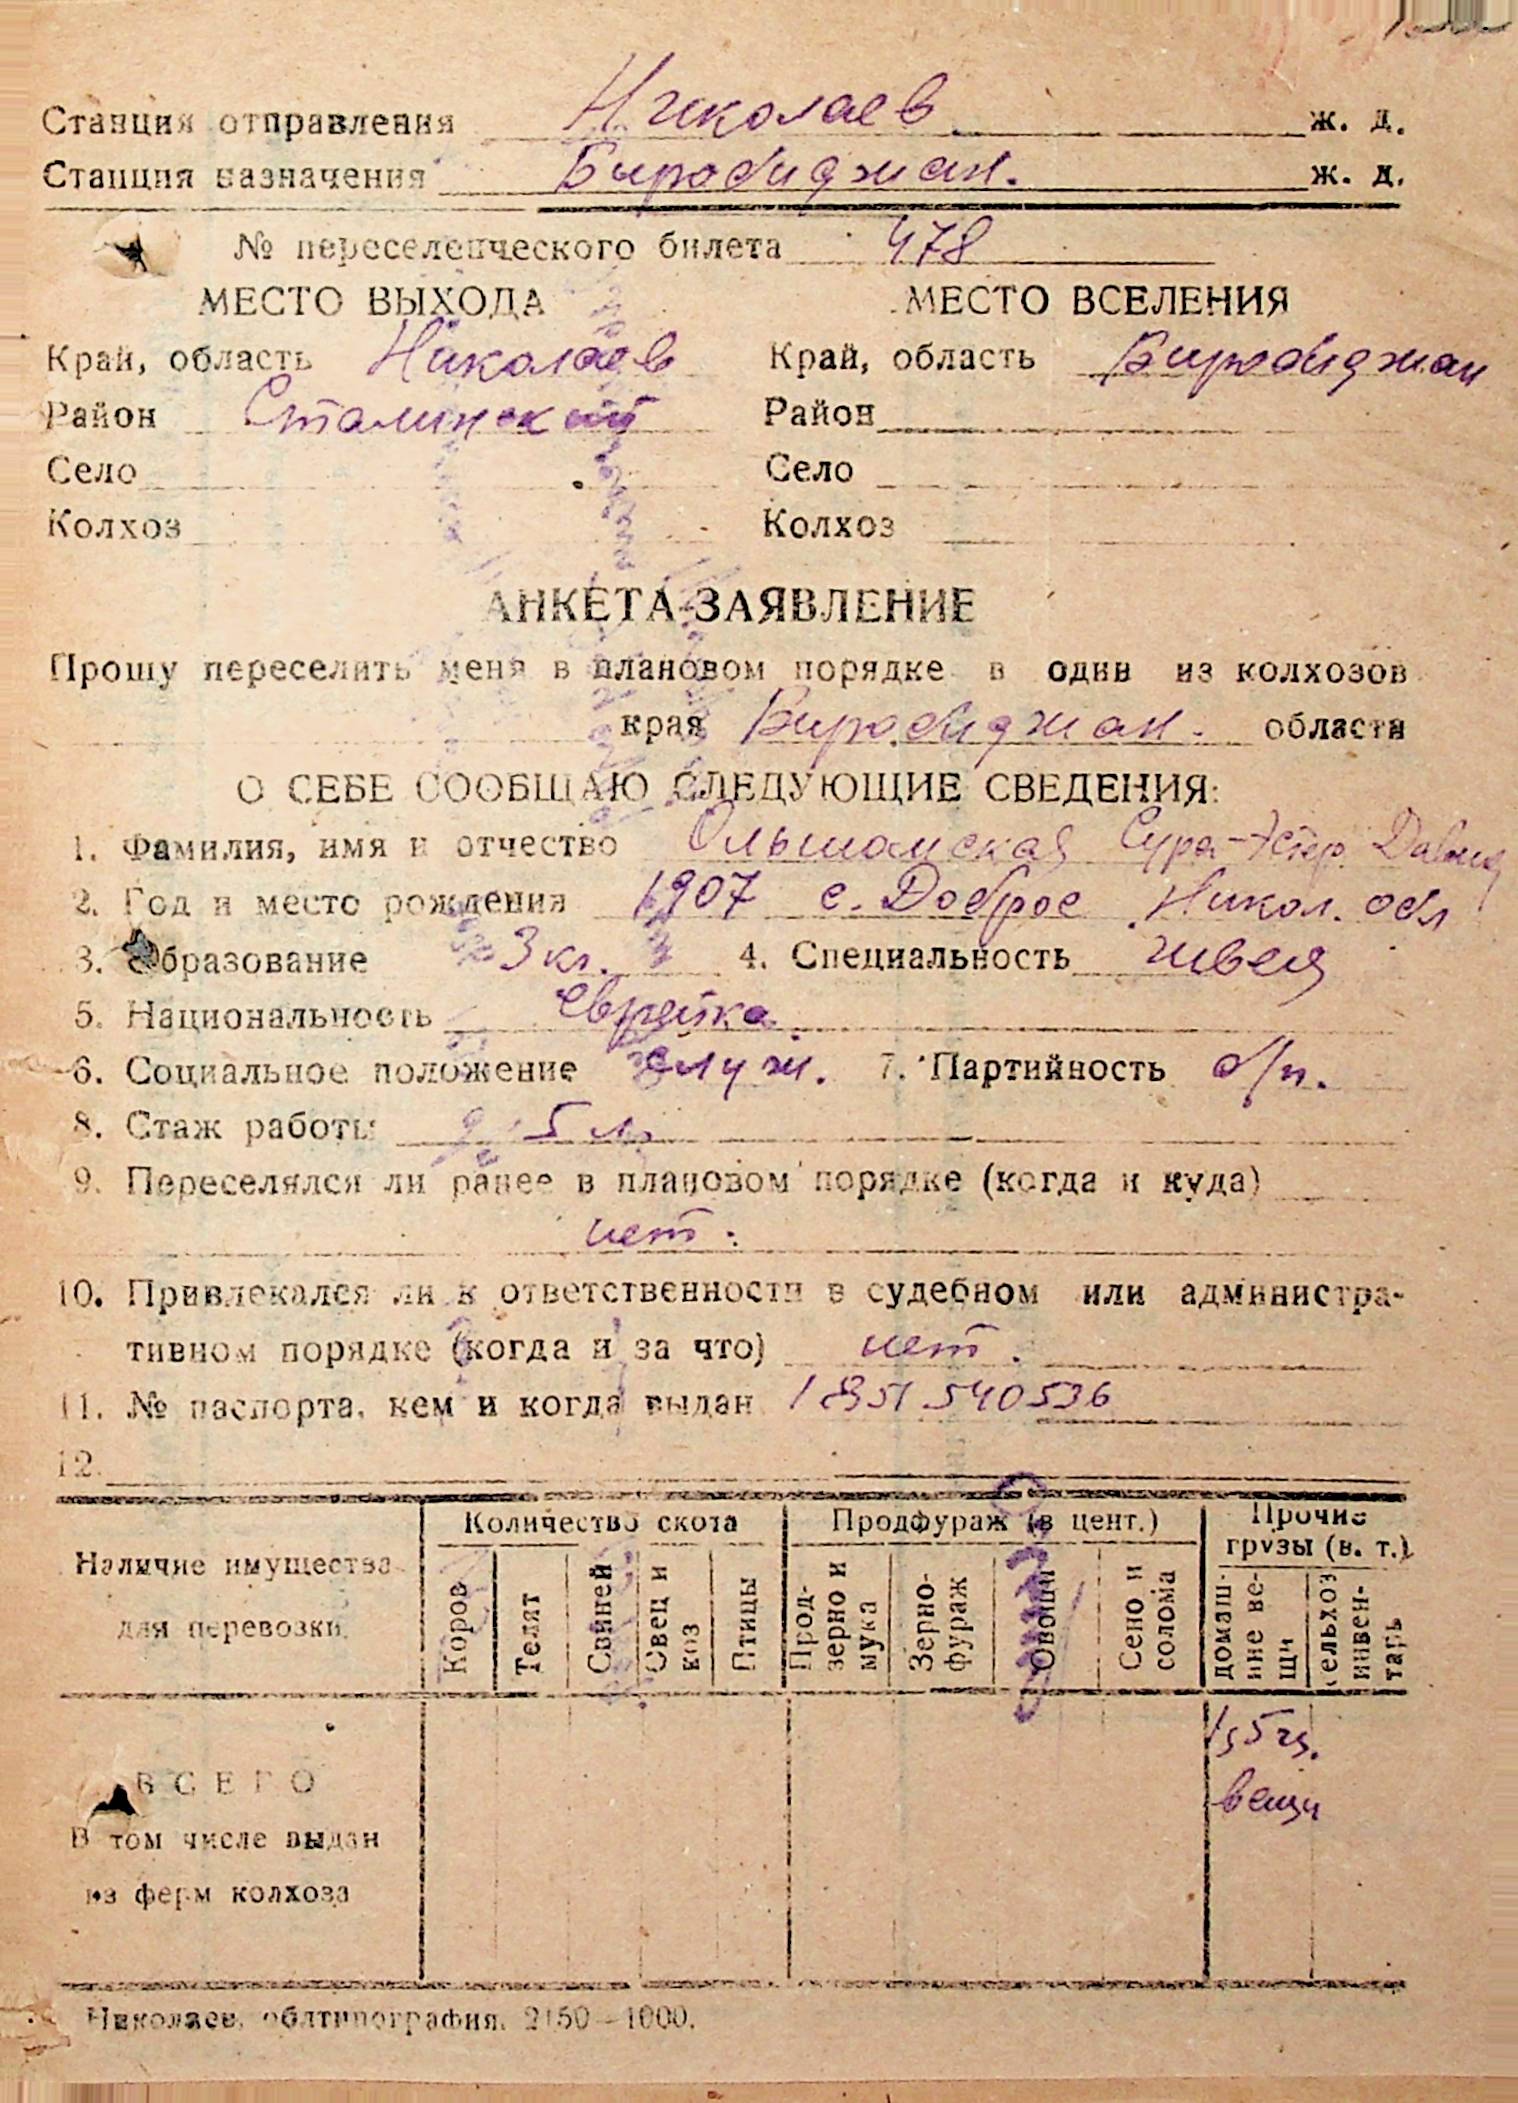 Станция отправления Николаев ж. д.
Станция назначения Биробиджан. ж. д.
№ переселенческого билета 478
МЕСТО ВЫХОДА МЕСТО ВСЕЛЕНИЯ
Край, область Николаев Край, область Биробиджан
Район Сталинский Район
Село Село
Колхоз Колхоз
АНКЕТА-ЗАЯВЛЕНИЕ
Прошу переселить меня в плановом порядке в один из колхозов
края Биробиджан. области
О СЕБЕ СООБЩАЮ СЛЕДУЮЩИЕ СВЕДЕНИЯ:
1. Фамилия, имя и отчество Ольшамская Сура-Эстер Давид
2. Год и место рождения 1907 с. Доброе Никол. обл
3. Образование 3 кл. 4. Специальность швея
5. Национальность еврейка
6. Социальное положение служ. 7. Партийность б/п.
8. Стаж работы 5 л.
9. Переселялся ли ранее в плановом порядке (когда и куда)
нет.
10. Привлекался ли к ответственности в судебном или администра-
тивном порядке (когда и за что) нет.
11. № паспорта, кем и когда выдан 540536
12.
Наличие имущества для перевозки
Количество скота
Продфураж (в цент.)
Прочие грузы (в. т.)
Коров
Телят
Свиней
Овец и коз
Птицы
Прод-зерно и мука
Зерно-фураж
Овощи
Сено и солома
домаш-ние ве-щи
сельхоз инвен-тарь
ВСЕГО
1,5 ц.
вещи
В том числе выдан
из ферм колхоза
Николаев, облтипография. 2150—1000.